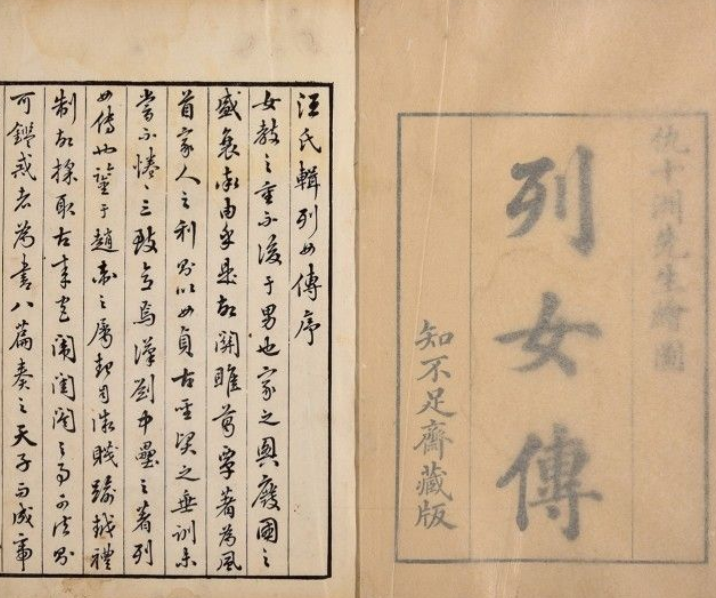 仇十洲先生繪圖
列女傳
知不足齋藏版
汪氏輯列女傳序
女教之重不後于男也家之興廢國之
盛衰率由乎是故關雎葛覃著為風
首家人之利則以女貞古聖賢之垂訓未
嘗不惓〻三致意焉漢劉中壘之著列
女傳也鑒于趙衛之屬起自微賤踰越禮
制故採取古來宮閨閣之事可法則
可鑑戒者為書八篇奏之天子而成帝